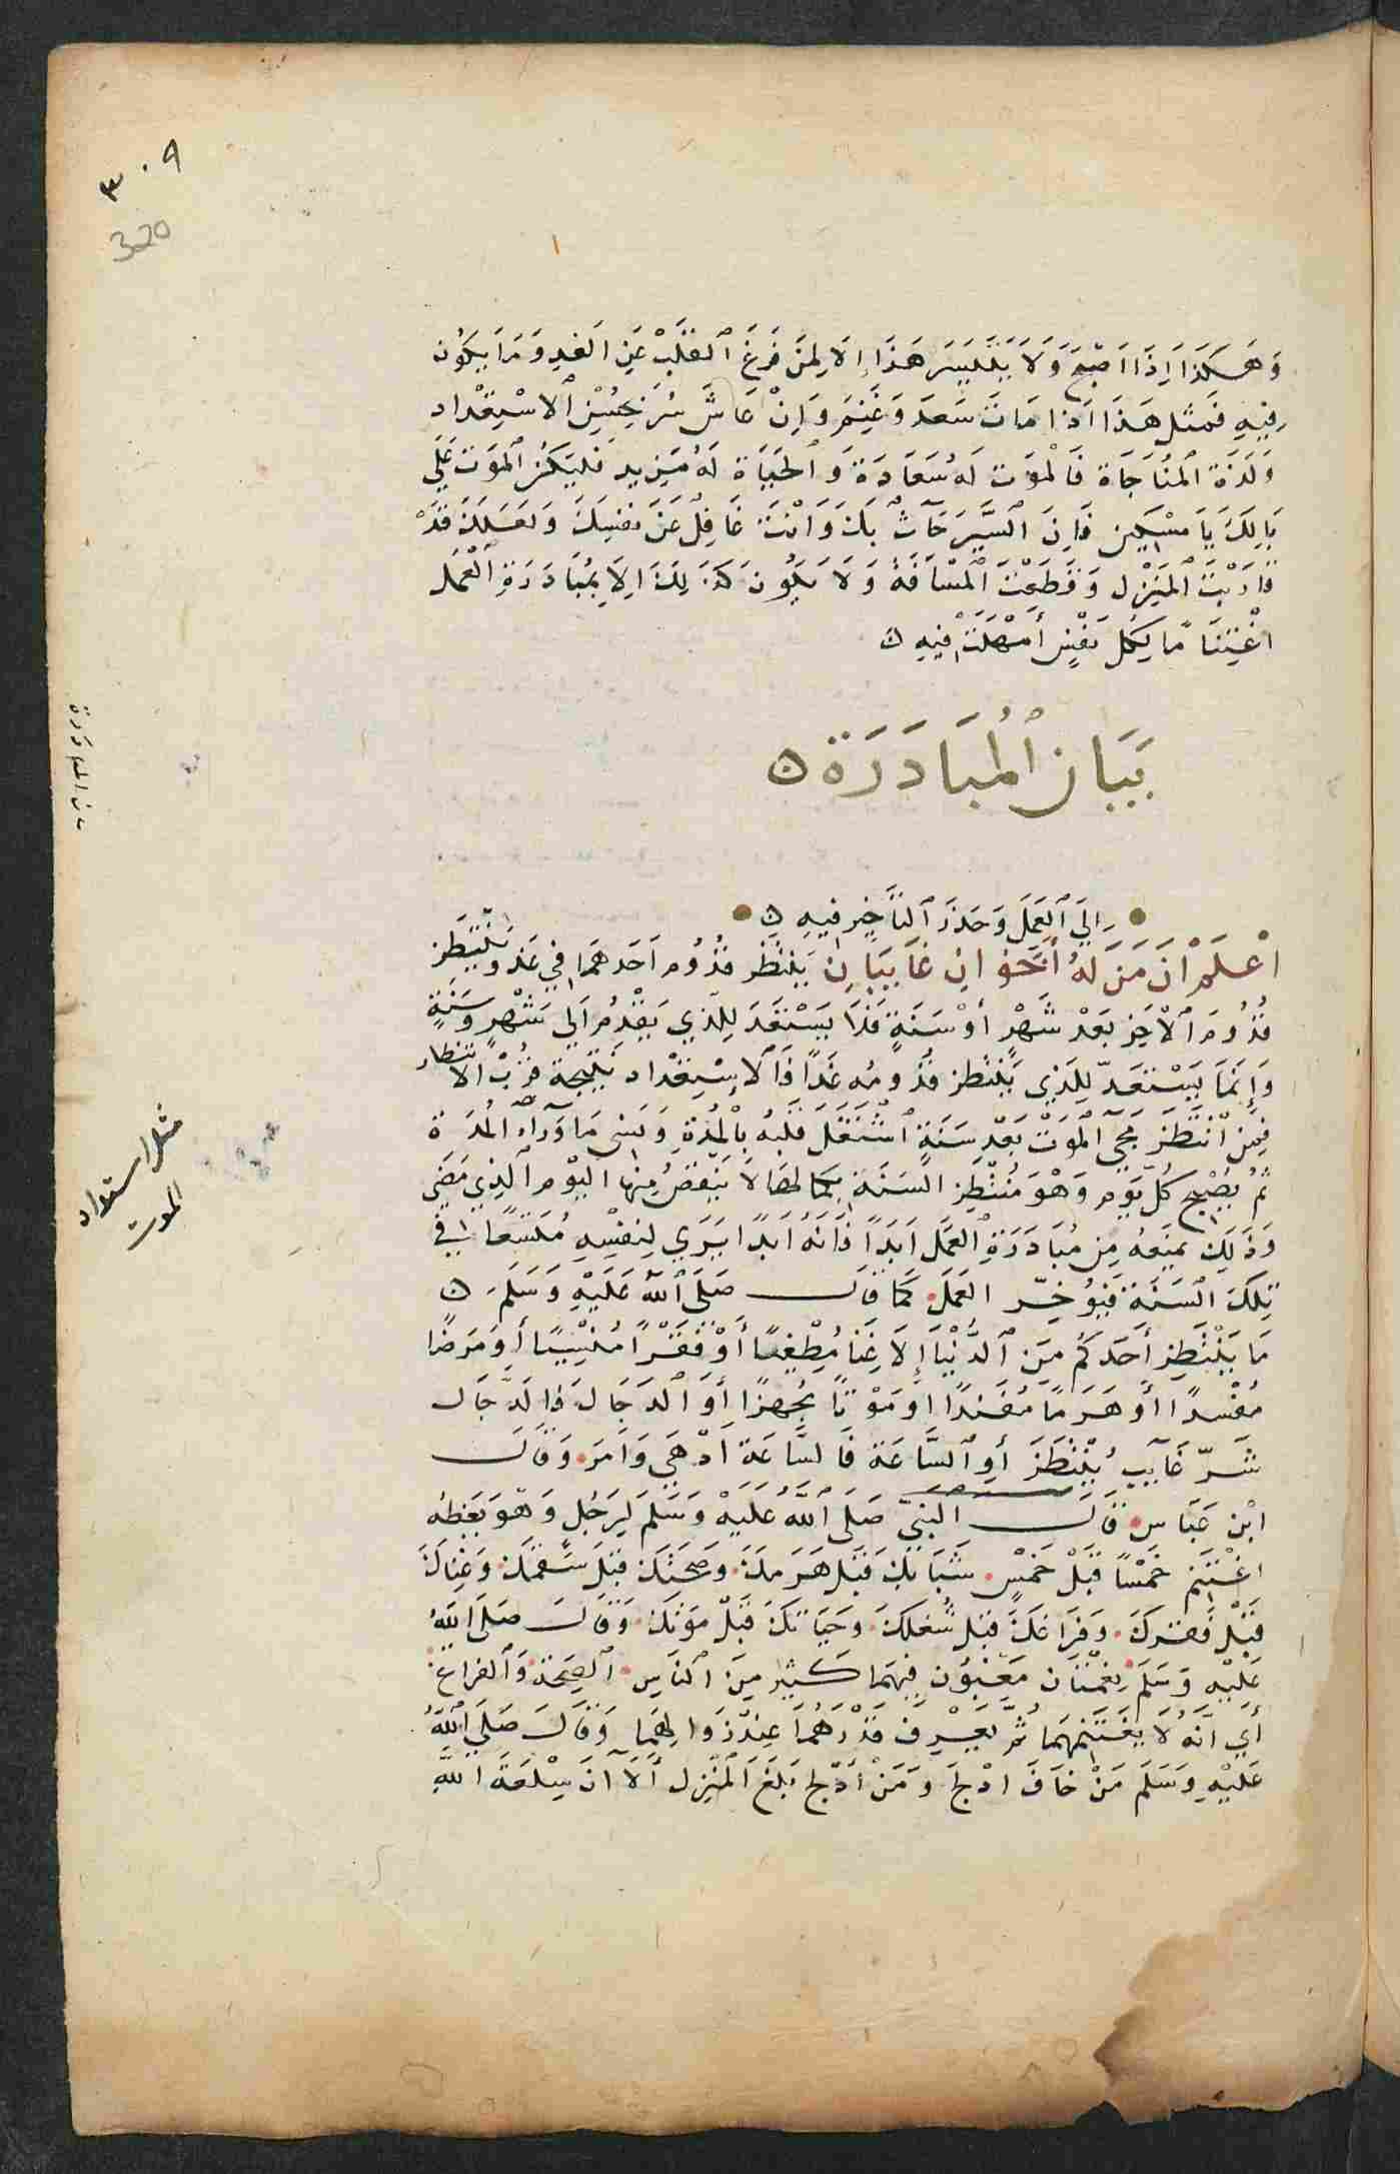 ٣٠٩
320
وَهَكَذَا اِذَا اَصْبَحَ وَلَا يَتَيَسَّرُ هَذَا إِلَا لِمَنْ فَرَغَ الْقَلْبَ عَنِ الْغَدِ وَمَا يَكُون
فِيهِ فَمِثْل هَذَا اِذَا مَاتَ سَعِدَ وَغَنِمَ وَاِنْ عَاشَ سُرَّ بِحُسْنِ الْاسْتِعْدَاد
وَلَذَةِ الْمُنَاجَاة فَالْمَوْت لَهُ سَعَادَة وَالْحَيَاة لَهُ مَزِيد فَلْيَكُنِ الْمَوْت عَلَي
بَالِكَ يَا مِسْكِين فَاِنَ السَّيْرَ حَاثٌ بِكَ وَاَنْتَ غَافِلٌ عَنْ نَفْسِكَ وَلَعَلَكَ قَدْ
قَارَبْتَ الْمَنْزِل وَقَطَعْتَ الْمَسَافَةَ وَلَا يَكُونُ كَذَلِكَ اِلَا بِمُبَادَرَةِ الْعَمَل
اغْتِنَامًا لِكُلِ نَفَسٍ أُمْهِلْتَ فِيهِ ۞
بَيَان الْمُبَادَرَة ۞
إِلَي الْعَمَلِ وَحَذَرَ التَّأْخِيرِ فِيهِ ۞
اعْلَمْ اَنَ مَنْ لَهُ أَخَوَانِ غَايِبَانِ يَنْتَظِر قُدُوم اَحَدهمَا فِي غَد وَيَنْتَظِر
قُدُومَ الْاخَر بَعْدَ شَهْر أَوْ سَنَةٍ فَلَا يَسْتَعِدَ لِلَذِي يَقْدُم اِلَي شَهْرٍ وَسَنَةٍ
وَإِنَمَا يَسْتَعِدّ لِلَذِي يَنْتَظِر قُدُومه غَدًا فَالْاسْتِعْدَاد نَتِيجَة قُرْب الْانتظار
فَمَن انْتَظَرَ مَجِيَ الْمَوْت بَعْدَ سَنَةٍ اشْتَغَلَ قَلْبهُ بِالْمُدَةِ وَنَسِيَ مَا وَرَآء الْمُدَة
ثُمَّ يُصْبِح كُلّ يَوْم وَهْوَ مُنْتَظِر السَنَة بِكَمَالِهَا لَا يَنْقُصُ مِنْهَا الْيَوْم الَذِي مَضَي
وَذَلِكَ يَمْنَعهُ مِنْ مُبَادَرَةِ الْعَمَل اَبَدًا فَاِنَهُ اَبَدًا يَرَي لِنَفْسِهِ مُتَسَعًا فِي
تِلْكَ السَنَة فَيُؤَخِّر الْعَمَلَ كَمَا قَالَ صَلَي اللَه عَلَيْهِ وَسَلَم ۞
مَا يَنْتَظِر أَحَدكُمْ مِنَ الدُّنْيَا إِلَا غِنًا مُطْغِيًا أَوْ فَقْرًا مُنْسِيًا أَوْ مَرَضًا
مُفْسِدًا أَوْ هَرَمًا مُفَنِدًا أَوْ مَوْتًا مُجْهِزًا أَوِ الْدَجَالَ فَالدَّجَال
شَرّ غَآيِبٍ يُنْتَظَرَ أَوِ السَّاعَة فَالسَّاعَة اَدْهَي وَاَمَر وَقَالَ
ابْن عَبَاسٍ قَالَ النَبِيّ صَلَي اللَّهُ عَلَيْهِ وَسَلَمَ لِرَجُلٍ وَهْوَ يَعِظهُ
اغْتَنِم خَمْسًا قَبْلَ خَمْسٍ شَبَابَك قَبْلَ هَرَمِكَ وَصِحَتَكَ قَبْلَ سَقَمِكَ وَغِنَاكَ
قَبْلَ فَقْرِكَ وَفَرَاغكَ قَبْل شُغْلكَ وَحَيَاتكَ قَبْلَ مَوْتِكَ وَقَالَ صَلَي اللَهُ
عَلَيْهِ وَسَلَم نِعْمَتَان مَغْبُون فِيهِمَا كَثِير مِنَ النَاسِ الْصِحَة وَالْفَرَاغ
أَيْ اَنَهُ لَا يَغْتَنِمهُمَا ثُمَّ يَعْرِف قَدْرَهُمَا عِنْدَ زَوَالِهِمَا وَقَالَ صَلَي اللَّه
عَلَيْهِ وَسَلَم مَنْ خَافَ ادْلَجَ وَمَنْ أَدْلَج بَلَغَ الْمَنْزِل أَلَآ اِنَ سِلْعَةَ اللَّهِ
بيان المبادرة
مثل استعداد
الموت